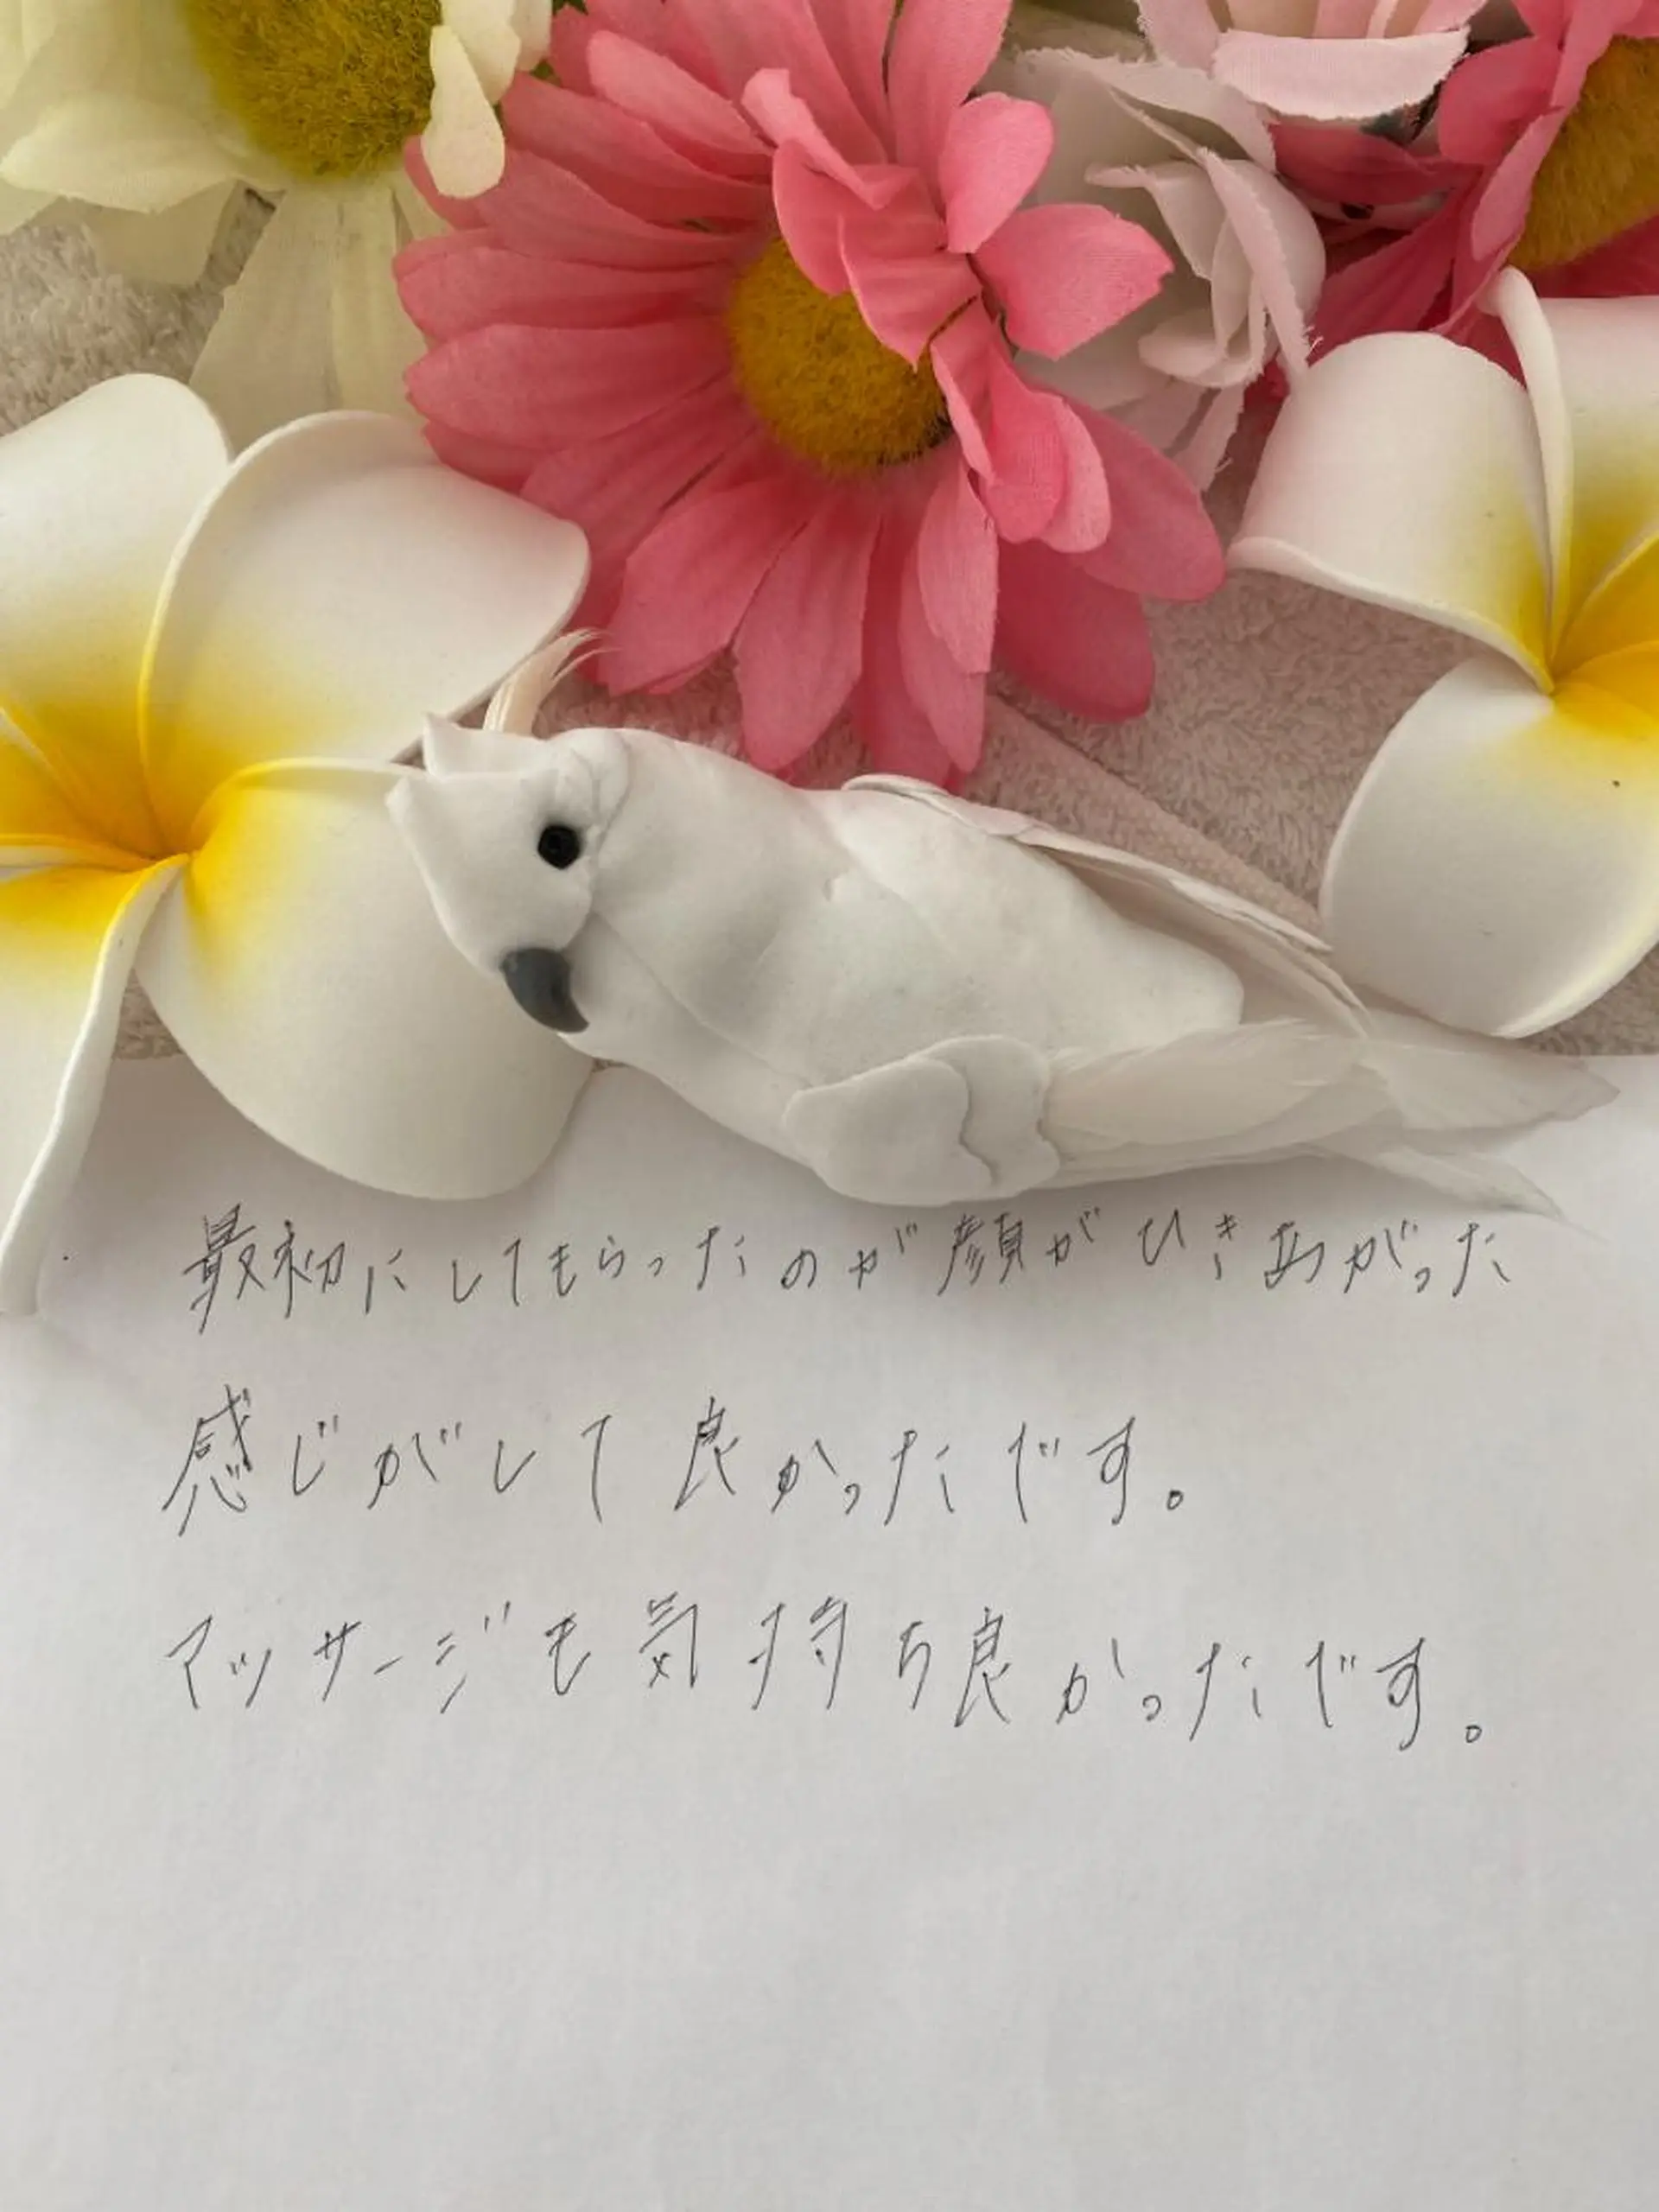 最初にしてもらったのが顔がひきあがった
感じがして良かったです。
マッサージも気持ち良かったです。